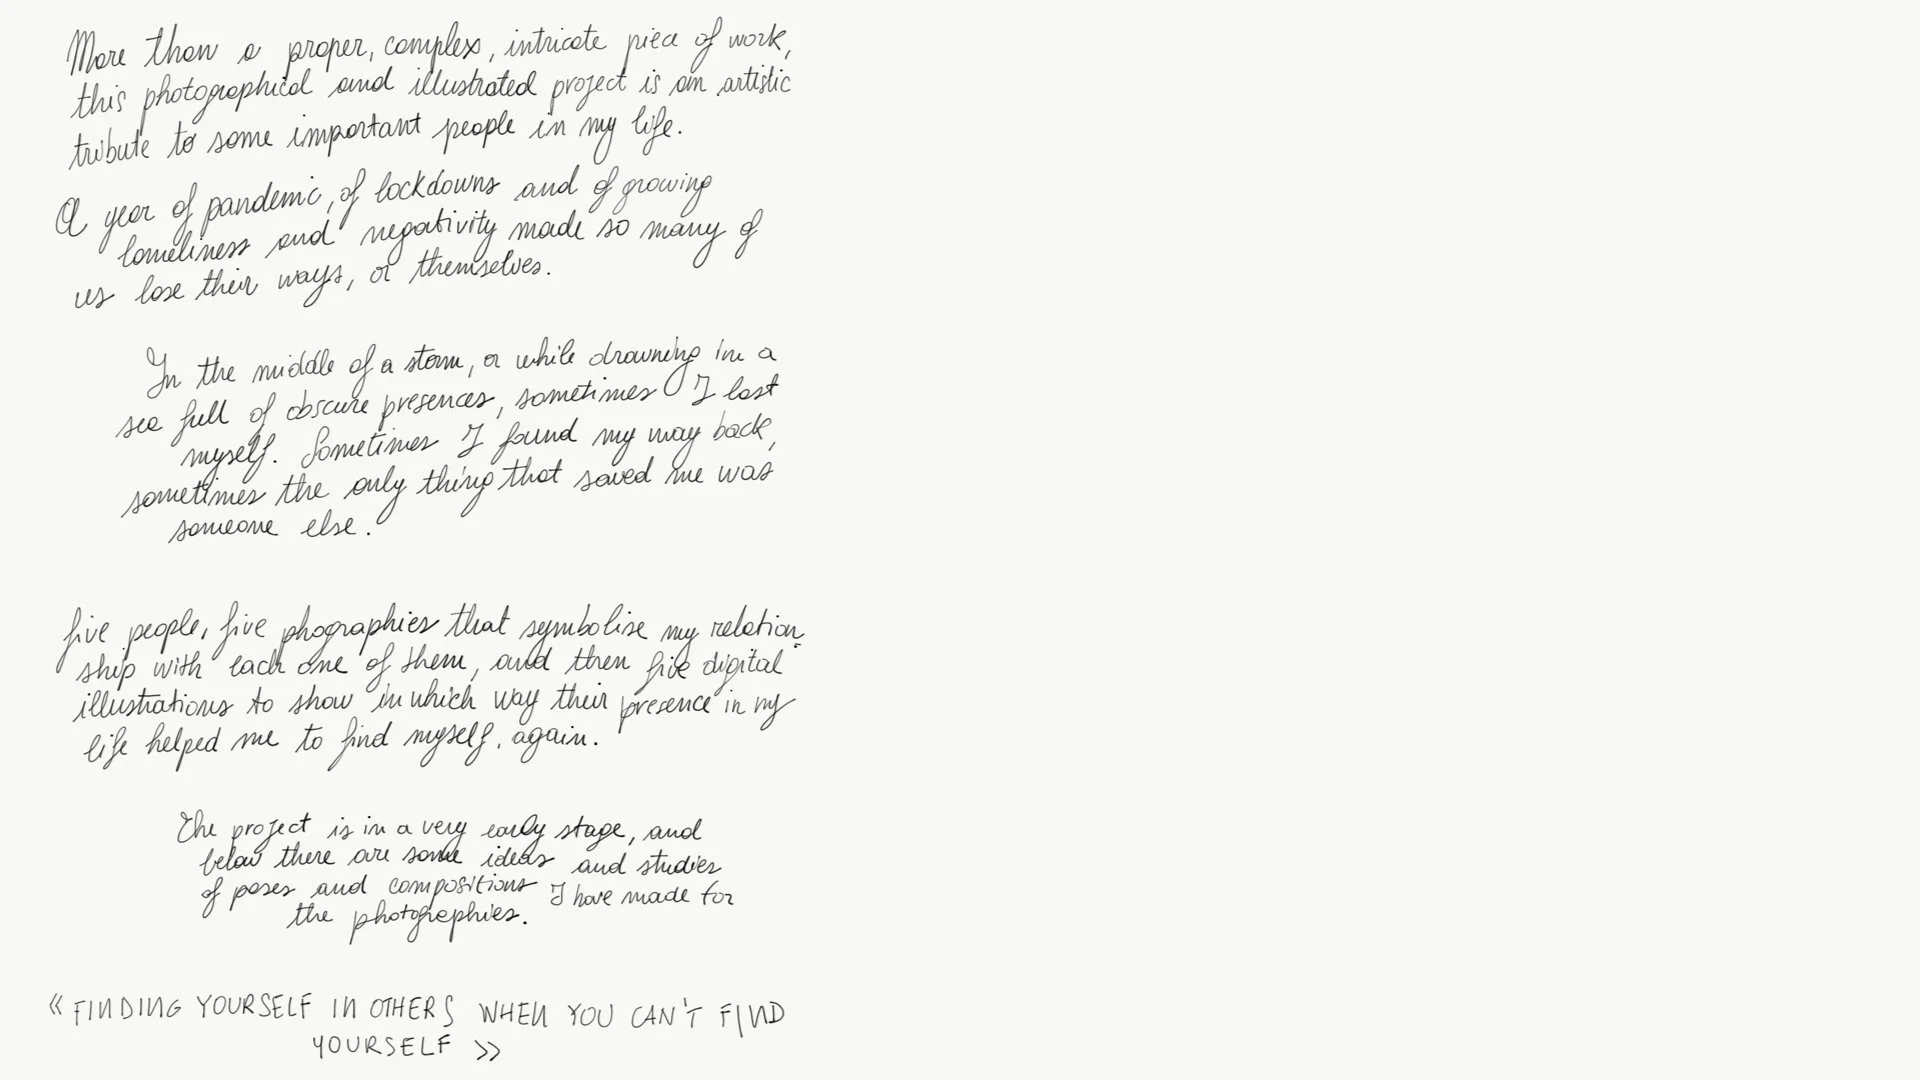 More than a proper, complex, intricate piece of work,
this photographical and illustrated project is an artistic
tribute to some important people in my life.
A year of pandemic, of lockdowns and of growing
loneliness and negativity made so many of
us lose their ways, or themselves.
In the middle of a storm, or while drowning in a
sea full of obscure presences, sometimes I lost
myself. Sometimes I found my way back,
sometimes the only thing that saved me was
someone else.
five people, five phographies that symbolise my relation-
ship with each one of them, and then five digital
illustrations to show in which way their presence in my
life helped me to find myself, again.
The project is in a very early stage, and
below there are some ideas and studies
of poses and compositions I have made for
the photographies.
« FINDING YOURSELF IN OTHERS WHEN YOU CAN'T FIND
YOURSELF »